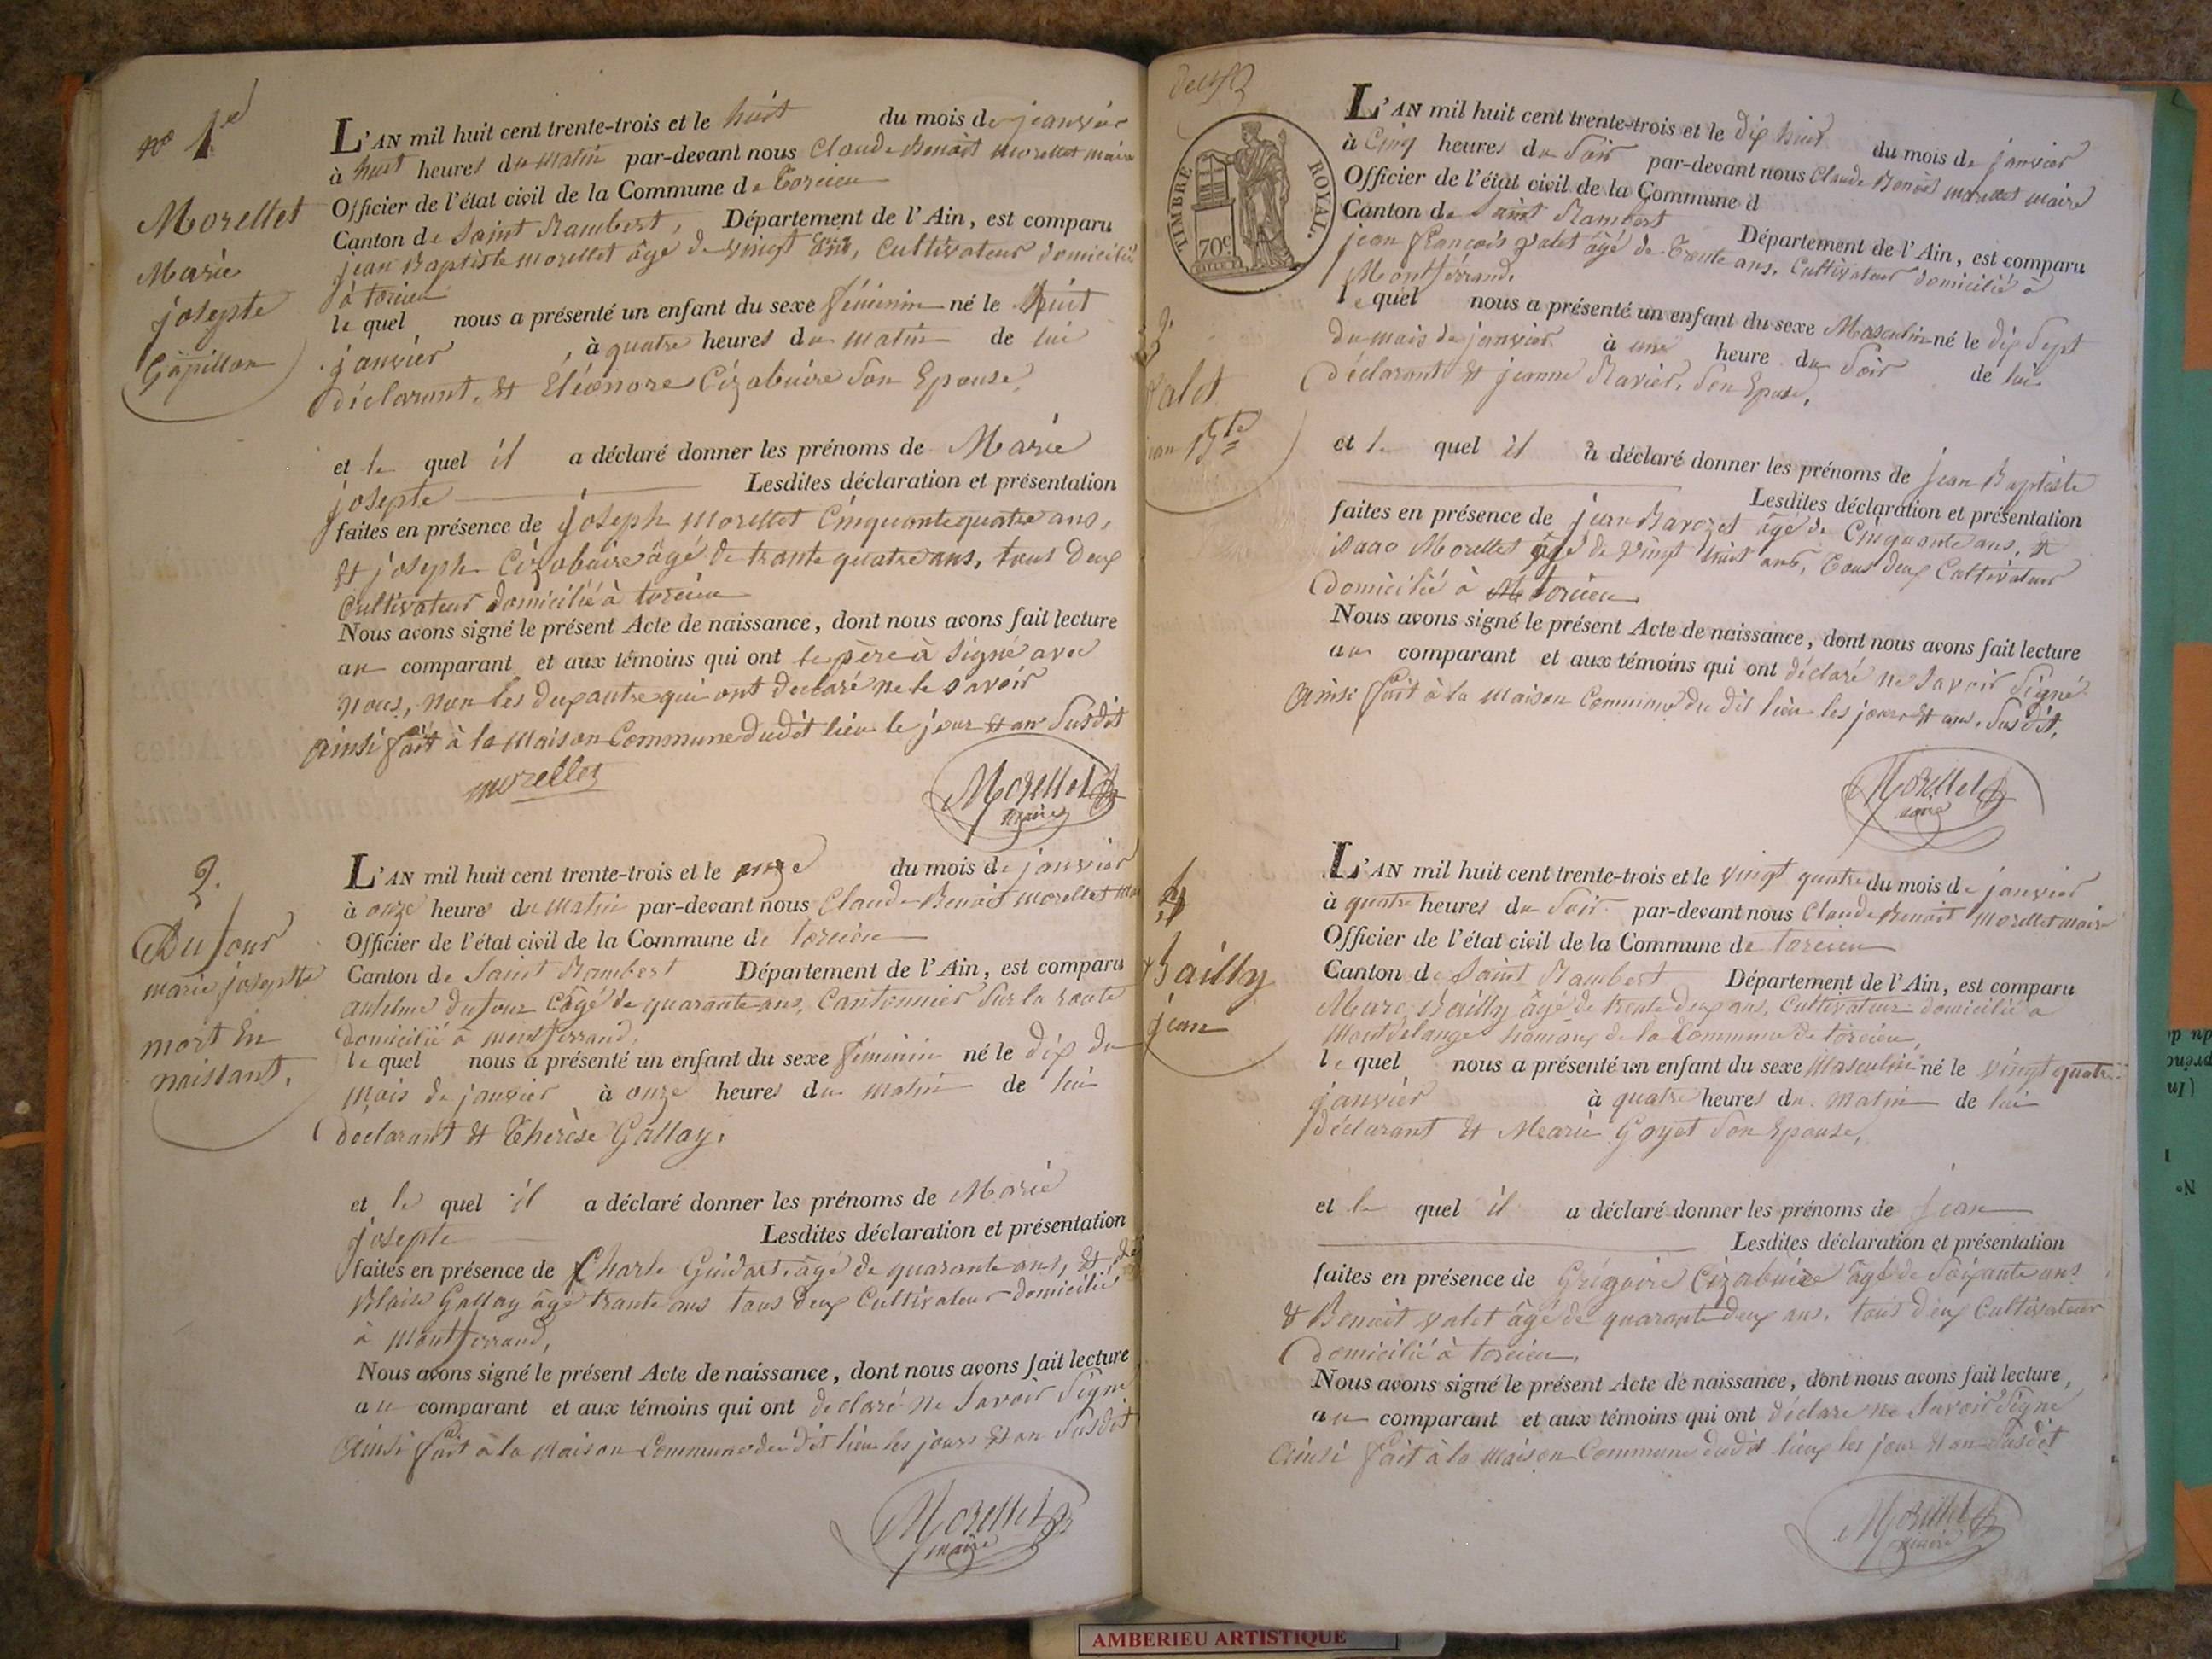 nº 1er
Morellet
Marie
josepte
L'AN mil huit cent trente-trois et le huit du mois de janvier
à huit heures du matin par-devant nous Claude Benoit Morellet maire
Officier de l'état civil de la Commune de Torcieu
Canton de Saint Rambert, Département de l'Ain, est comparu
jean Baptiste morellet âgé de vingt ans, Cultivateur domicilié
à torcieu
le quel nous a présenté un enfant du sexe féminin né le huit
janvier, à quatre heures du matin de lui
déclarant, et Eléonore Cizabuire Son Epouse,
et le quel il a déclaré donner les prénoms de Marie
josepte Lesdites déclaration et présentation
faites en présence de joseph morellet Cinquante quatre ans,
et joseph Cizabuire âgé de trante quatre ans, tous deux
Cultivateur domicilié à torcieu
Nous avons signé le présent Acte de naissance, dont nous avons fait lecture
au comparant et aux témoins qui ont le père à Signé avec
nous, non les deux autre qui ont declaré ne le savoir
ainsi fait à la Maison Commune dudit lieu le jour et an Susdit
morellet
Morellet
maire
2.
Dufour
marie josepte
mort En
naissant.
L'AN mil huit cent trente-trois et le onze du mois de janvier
à onze heures du matin par-devant nous Claude Benoit Morellet
Officier de l'état civil de la Commune de torcieu
Canton de Saint Rambert Département de l'Ain, est comparu
anselme dufour âgé de quarante ans, Cantonnier Sur la route
domicilié à montferrand,
le quel nous a présenté un enfant du sexe féminin né le dix du
mois de janvier à onze heures du matin de lui
declarant et Thérèse Gallay,
et le quel il a déclaré donner les prénoms de Marie
josepte Lesdites déclaration et présentation
faites en présence de Charle Guidart, âgé de quarante ans, et de
Blaise Gallay âgé trante ans tous deux Cultivateur domicilié
à Montferrand,
Nous avons signé le présent Acte de naissance, dont nous avons fait lecture
au comparant et aux témoins qui ont declaré ne Savoir Signé
ainsi fait à la Maison Commune du dit lieu les jours et an Susdit
Morellet
maire
TIMBRE ROYAL.
70c.
3.
Valet
jean Bte
L'AN mil huit cent trente-trois et le dix huit du mois de janvier
à Cinq heures du Soir par-devant nous Claude Benoit Morellet Maire
Officier de l'état civil de la Commune d
Canton de Saint Rambert Département de l'Ain, est comparu
jean françois valet âgé de Trente ans, Cultivateur domicilié à
Montferrand,
le quel nous a présenté un enfant du sexe Masculin né le dix Sept
du mois de janvier à une heure du Soir de lui
déclarant et jeanne Ravier, Son Epouse,
et le quel il a déclaré donner les prénoms de jean Baptiste
Lesdites déclaration et présentation
faites en présence de jean Bavozet âgé de Cinquante ans, et
isaac Morellet âgé de vingt huit ans, Tous deux Cultivateur
domicilié à torcieu
Nous avons signé le présent Acte de naissance, dont nous avons fait lecture
au comparant et aux témoins qui ont déclaré ne Savoir Signé
ainsi fait à la Maison Commune du dit lieu les jour et an Susdit,
Morellet
maire
4
Bailly
jean
L'AN mil huit cent trente-trois et le vingt quatre du mois de janvier
à quatre heures du Soir par-devant nous Claude Benoit Morellet maire
Officier de l'état civil de la Commune de torcieu
Canton de Saint Rambert Département de l'Ain, est comparu
Marc Bailly âgé de trente deux ans, Cultivateur domicilié à
Montdelange hamaux de la Commune de torcieu,
le quel nous a présenté un enfant du sexe Masculin né le vingt quatre
janvier à quatre heures du matin de lui
déclarant et Marie Goyet Son Epouse,
et le quel il a déclaré donner les prénoms de jean
Lesdites déclaration et présentation
faites en présence de Grégoire Cizabuire âgé de Soixante ans
& Benoit valet âgé de quarante deux ans, tous deux Cultivateur
domicilié à torcieu,
Nous avons signé le présent Acte de naissance, dont nous avons fait lecture,
au comparant et aux témoins qui ont déclaré ne Savoir Signé
ainsi fait à la Maison Commune dudit lieux les jour et an Susdit
Morellet
maire
AMBERIEU ARTISTIQUE